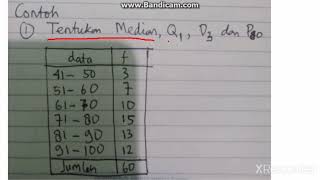 www.Bandicam.com
Contoh
① Tentukan Median, Q1, D3 dan P80
data f
41 - 50 3
51 - 60 7
61 - 70 10
71 - 80 15
81 - 90 13
91 - 100 12
Jumlah 60